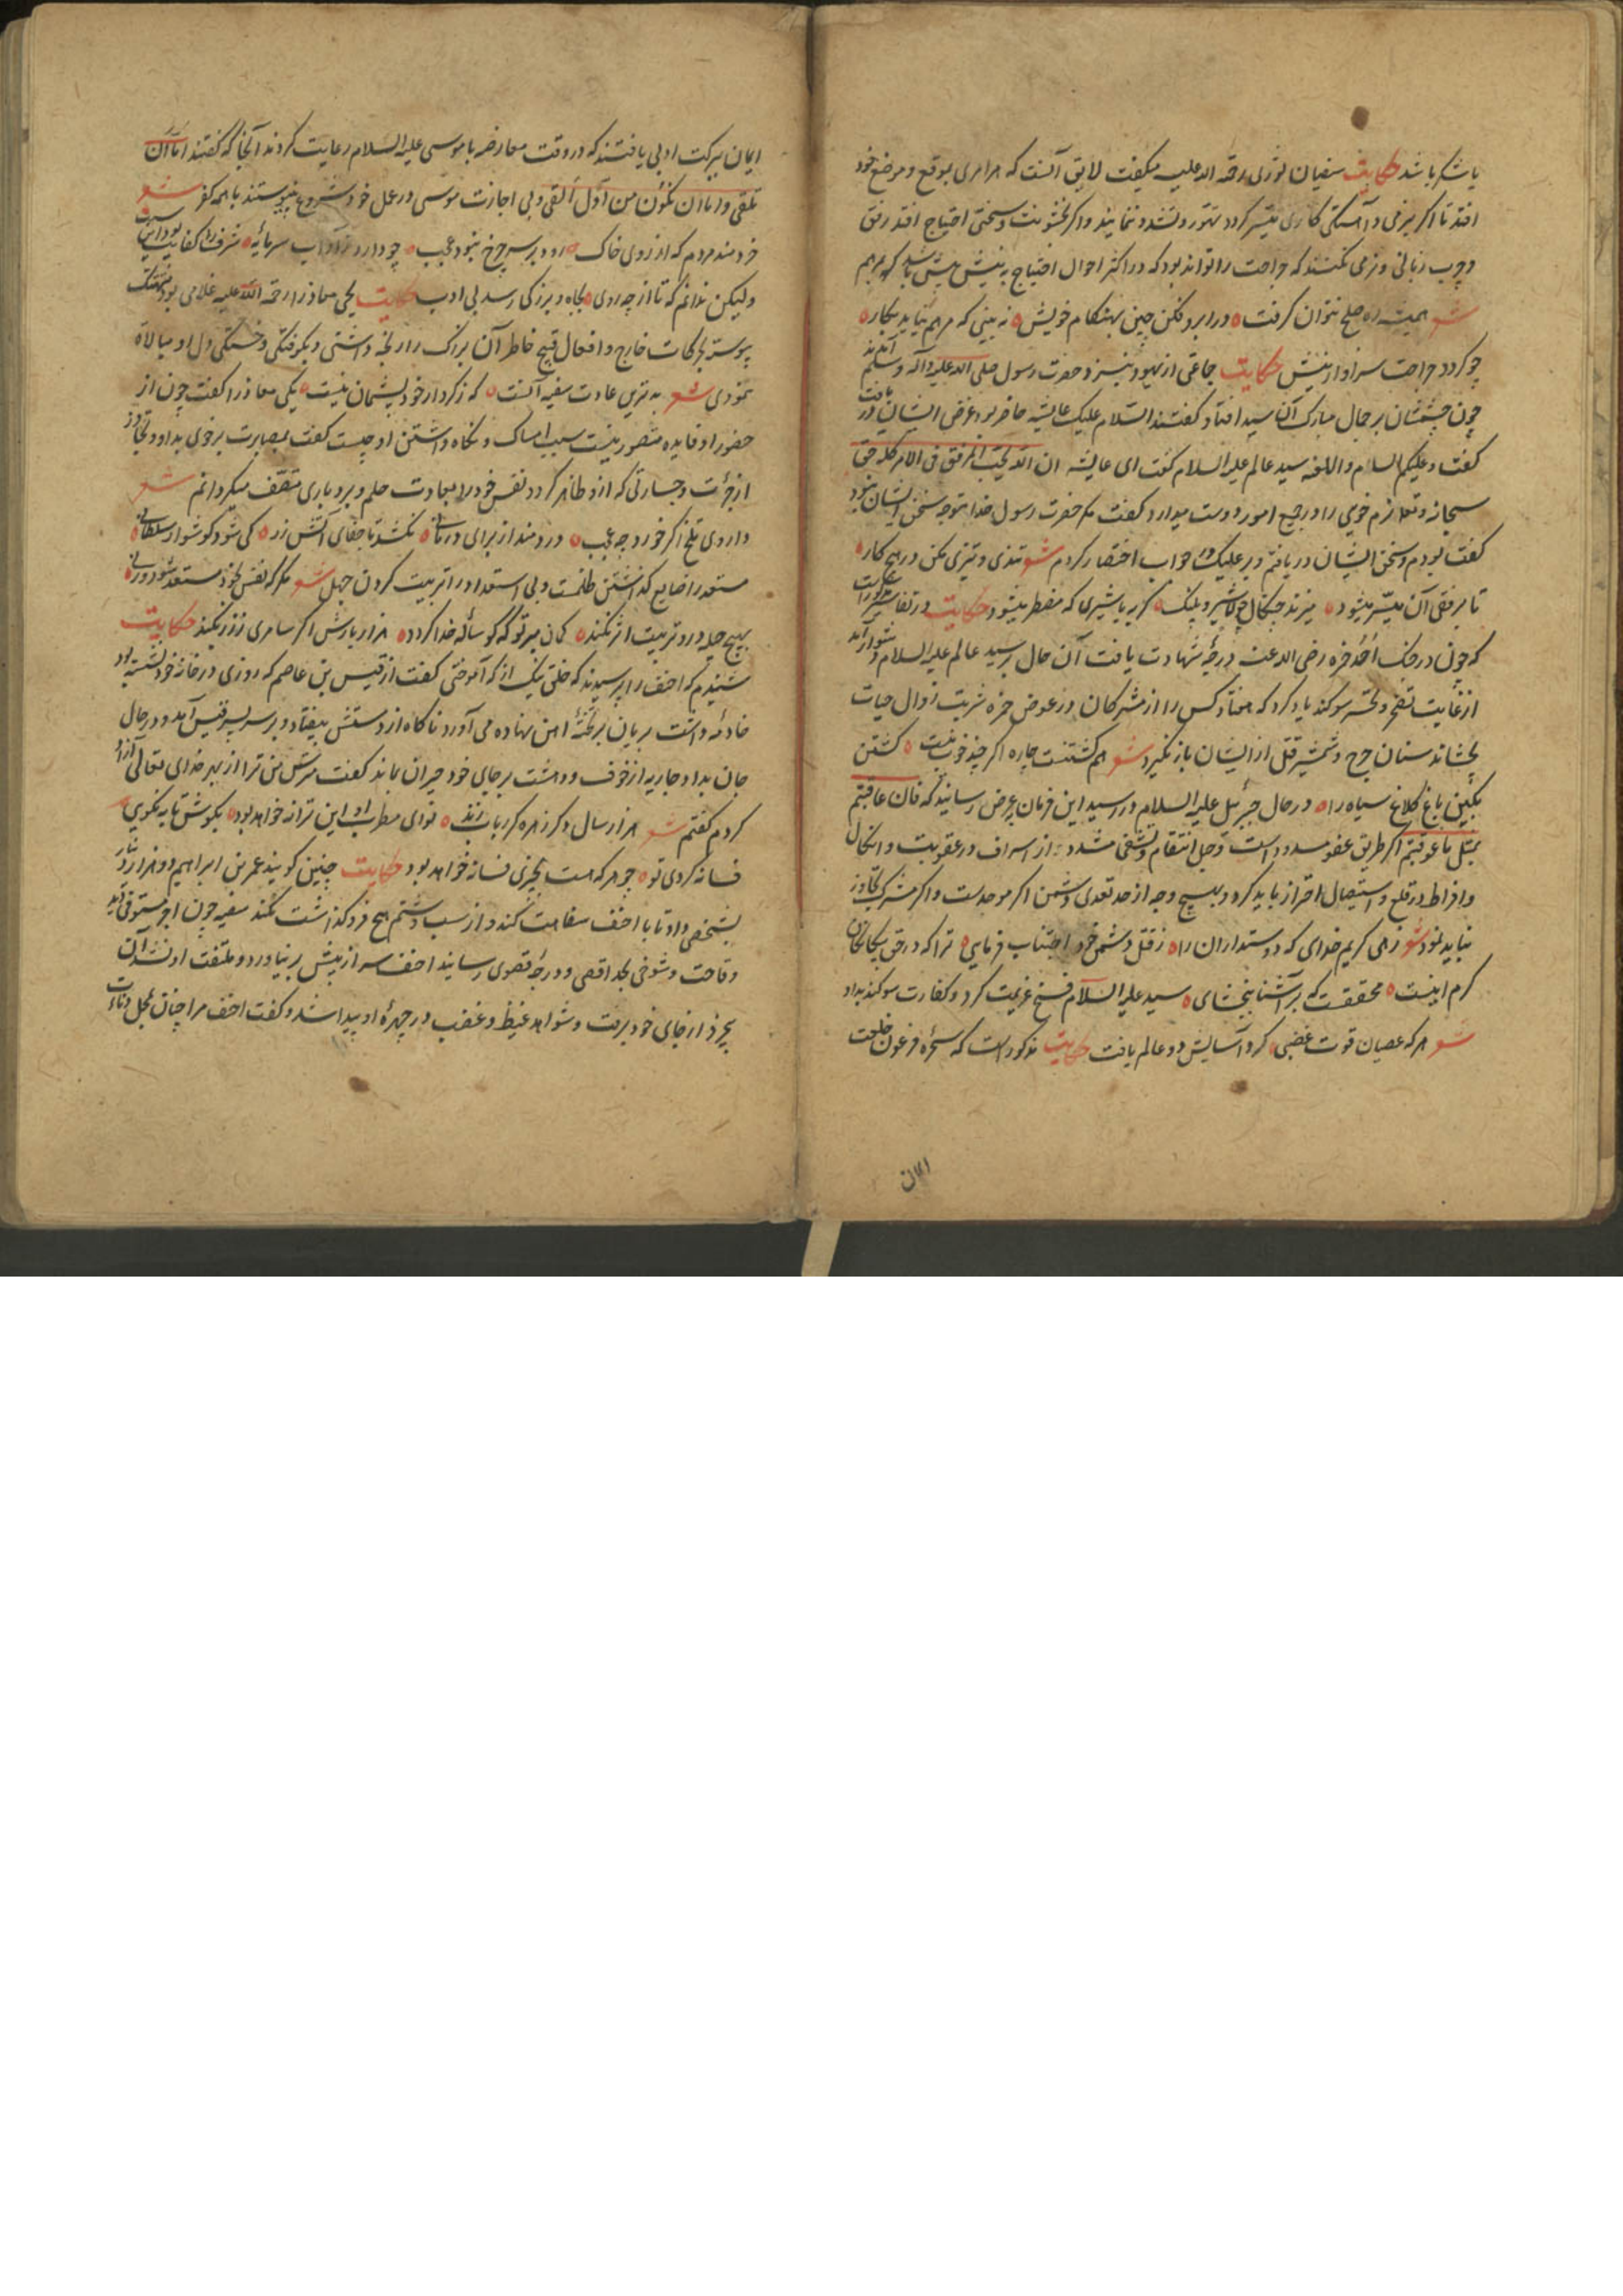 یا شکر باشد حکایت سفیان ثوری رحمة الله علیه میگفت لایق آنست که هر امری بموقع و موضع خود
افتد تا اگر بنرمی و آهستگی کاری میسر گردد تهور و تندی ننمایند و اگر بخشونت و سختی احتیاج افتد رفق
و چرب زبانی و نرمی نکنند که جراحت را تواند بود که در اکثر احوال احتیاج به نیش بیش باشد که مرهم
شعر همیشه راه صلح نتوان گرفت در ابرو فکن چین بهنگام خویش نه بینی که مرهم نیاید بکار
چو گردد جراحت سزاوار نیش حکایت جماعتی از یهود بنزد حضرت رسول صلی الله علیه و آله و سلم آمدند
چون چشمشان بر جمال مبارک آن سید افتاد گفتند السام علیک عایشه حاضر بود غرض ایشان دریافت
گفت و علیکم السام و اللعنه سید عالم علیه السلام گفت ای عایشه ان الله یحب الرفق فی الامر کله حق
سبحانه و تعالی نرم خویی را در جمیع امور دوست میدارد گفت مگر حضرت رسول خدا متوجه سخن ایشان نبود
گفت بودم و سخن ایشان دریافتم و بر علیک در جواب اختصار کردم شعر تندی و تیزی مکن در هیچ کار
تا برفق آن میسر میشود میزند چنگال چون شیر و پلنگ گربه با شیری که مضطر میشود حکایت در تفاسیر مذکور است
که چون در جنگ احد حمزه رضی الله عنه درجه شهادت یافت آن حال بر سید عالم علیه السلام دشوار آمد
از غایت تفجع و تحسر سوگند یاد کرد که هفتاد کس را از مشرکان در عوض حمزه شربت زوال حیات
بچشاند سنان جرح و شمشیر قتل از ایشان باز نگیرد شعر هم کشتنست چاره اگر چند خوب نیست کشتن
بکین باغ کلاغ سیاه را در حال جبرئیل علیه السلام در رسید این فرمان بعرض رسانید که فان عاقبتم
بمثل ما عوقبتم اگر طریق عفو مسدود است و حبل انتقام و تشفی مشدد از اسراف در عقوبت و انکال
و افراط در قلع و استیصال احتراز باید کرد و بهیچ وجه از حد تعدی دشمن اگر موحدست و اگر مشرک تجاوز
نباید نمود شعر زهی کریم خدای که دوستداران را ز قتل دشمن خود اجتناب فرمایی ترا که در حق بیگانگان
کرم اینست محققست که بر آشنا ببخشای سید علیه السلام فسخ عزیمت کرد و کفارت سوگند بداد
شعر هر که عصیان قوت غضبی کرد آسایش دو عالم یافت حکایت مذکور است که سحره فرعون خلعت
ایمان
ایمان ببرکت ادبی یافتند که در وقت معارضه با موسی علیه السلام رعایت کردند آنجا که گفتند اما ان
تلقی و اما ان نکون من اول القی و بی اجازت موسی در عمل خود شروع نپیوستند با همه کفر شعر
خردمند مردم که از روی خاک رود بر سر چرخ نبود عجب چو دارد ز آداب سرمایه شرف را کفایت بود این سبب
ولیکن ندانم که تا از چه روی بجاه و بزرگی رسد بی ادب حکایت یحیی معاذ را رحمة الله علیه غلامی بود متهتک
پیوسته بحرکات خارج و افعال قبیح خاطر آن بزرگ را رنجه داشتی و بگرفتگی و خستگی دل او مبالاة
نمودی شعر بدترین عادت سفیه آنست که ز کردار خود پشیمان نیست یکی معاذ را گفت چون از
حضور او فایده متصور نیست سبب امساک و نگاه داشتن او چیست گفت بمصابرت بر خوی بد او و تجاوز
از جرأت و جسارتی که ازو ظاهر گردد نفس خود را بعادت حلم و بردباری متصف میگردانم شعر
داروی تلخ اگر خورد چه عجب دردمند از برای درمانی نکشد تا جفای آتش زر کی شود گوشوار سلطانی
مستعد را ضایع گذاشتن ظلمست و بی استعداد را تربیت کردن جهل شعر هر که نفس خود مستعد نبود ورا
بهیچ حیله درو تربیت اثر نکند گمان مبر تو که گوساله خدا گردد هزار بارش اگر سامری ز زر نکند حکایت
شنیدم که احنف را پرسیدند که خلق نیک از که آموختی گفت از قیس بن عاصم که روزی در خانه خود نشسته بود
خادمه داشت بریان بر تخته آهن نهاده می آورد ناگاه از دستش بیفتاد و بر سر پسر قیس آمد و در حال
جان بداد و جاریه از خوف و دهشت بر جای خود حیران بماند گفت مترس من ترا از بهر خدای تعالی آزاد
کردم گفتم شعر هزار سال دگر زهره گر رباب زند نوای مطرب او این ترانه خواهد بود بکوش تا به نکویی
فسانه گردی تو چو هر که هست بچیزی فسانه خواهد بود حکایت چنین گویند عمر بن ابراهیم دو هزار دینار
بشخصی داد تا با احنف سفاهت کند و از سب و شتم هیچ فرو گذاشت نکند سفیه چون اجر مستوفی دید
وقاحت و شوخی بحد اقصی و درجه قصوی رسانید احنف سر از پیش بر نیاورد و ملتفت او نشد آن
بیخرد از جای خود برفت و شواهد غیظ و غضب در چهره او پیدا شد و گفت احنف مرا چنان بخل و دنائت